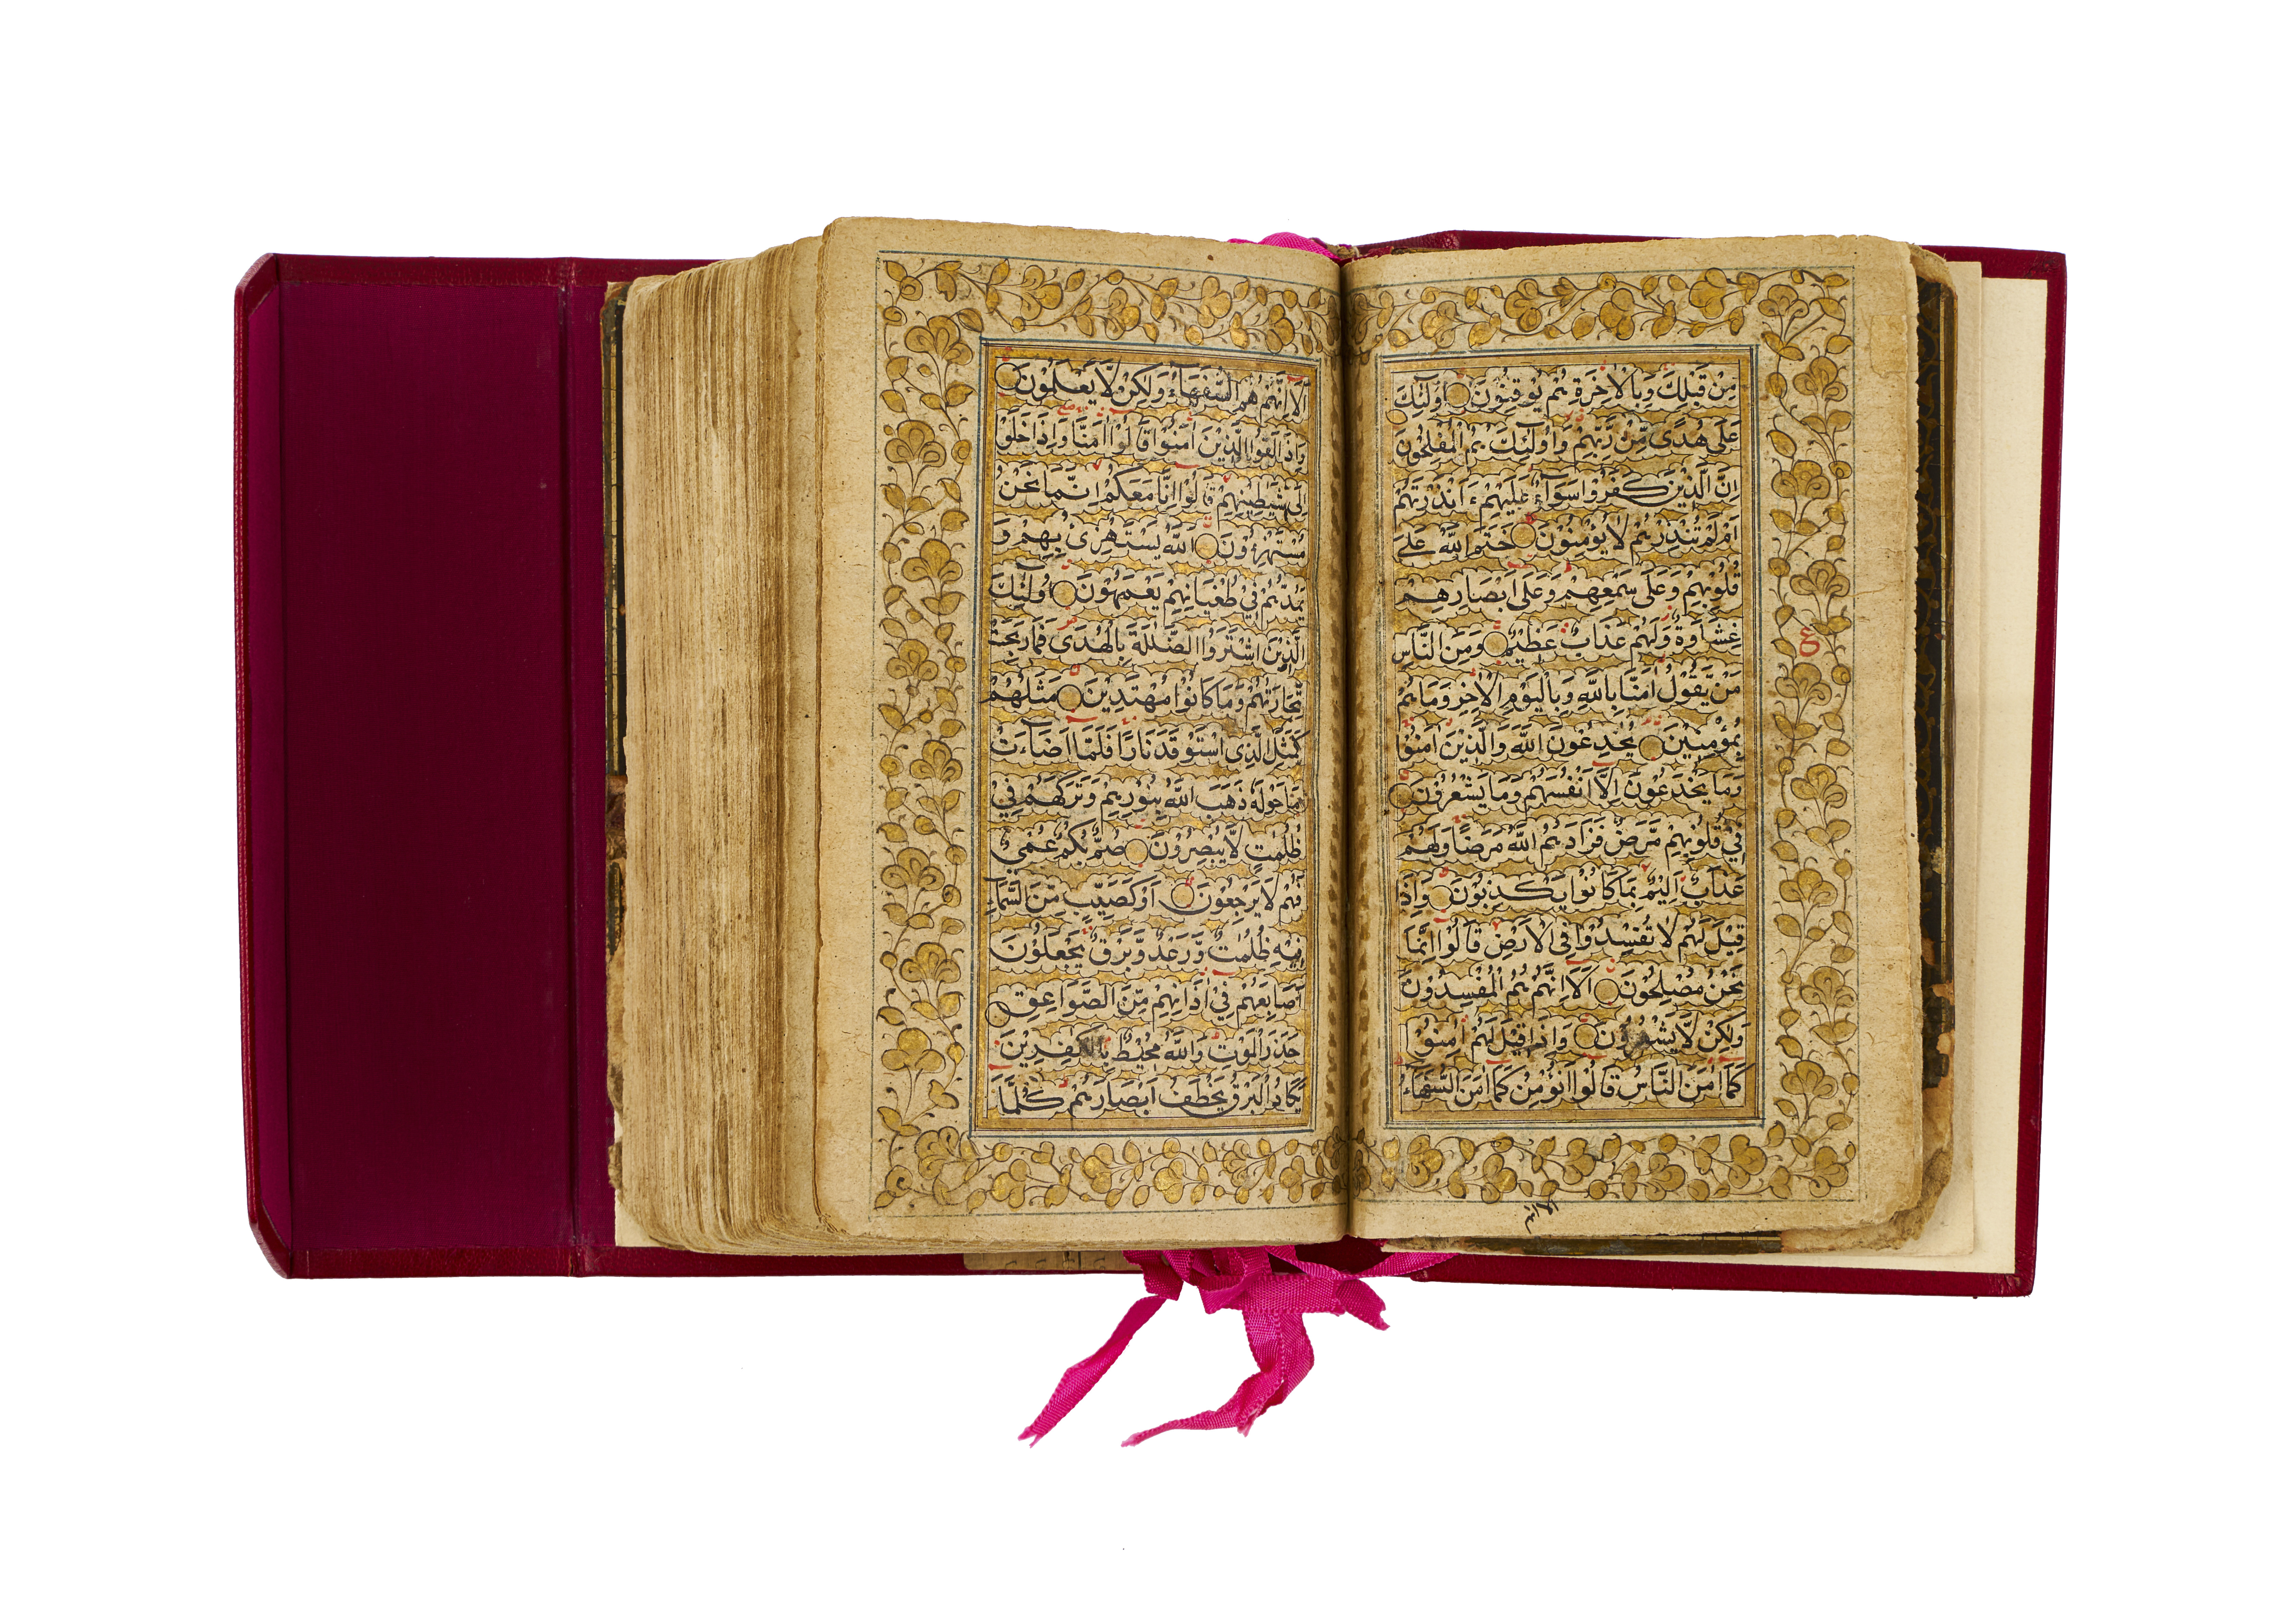 مِنْ قَبْلِكَ وَبِالْاٰخِرَةِ هُمْ يُوْقِنُوْنَ اُولٰٓئِكَ
عَلٰى هُدًى مِّنْ رَّبِّهِمْ وَاُولٰٓئِكَ هُمُ الْمُفْلِحُوْنَ
اِنَّ الَّذِيْنَ كَفَرُوْا سَوَآءٌ عَلَيْهِمْ ءَاَنْذَرْتَهُمْ
اَمْ لَمْ تُنْذِرْهُمْ لَا يُؤْمِنُوْنَ خَتَمَ اللّٰهُ عَلٰى
قُلُوْبِهِمْ وَعَلٰى سَمْعِهِمْ وَعَلٰى اَبْصَارِهِمْ
غِشَاوَةٌ وَّلَهُمْ عَذَابٌ عَظِيْمٌ وَمِنَ النَّاسِ
مَنْ يَّقُوْلُ اٰمَنَّا بِاللّٰهِ وَبِالْيَوْمِ الْاٰخِرِ وَمَا هُمْ
بِمُؤْمِنِيْنَ يُخٰدِعُوْنَ اللّٰهَ وَالَّذِيْنَ اٰمَنُوْا
وَمَا يَخْدَعُوْنَ اِلَّا اَنْفُسَهُمْ وَمَا يَشْعُرُوْنَ
فِيْ قُلُوْبِهِمْ مَّرَضٌ فَزَادَهُمُ اللّٰهُ مَرَضًا وَلَهُمْ
عَذَابٌ اَلِيْمٌ بِمَا كَانُوْا يَكْذِبُوْنَ وَاِذَا
قِيْلَ لَهُمْ لَا تُفْسِدُوْا فِى الْاَرْضِ قَالُوْا اِنَّمَا
نَحْنُ مُصْلِحُوْنَ اَلَا اِنَّهُمْ هُمُ الْمُفْسِدُوْنَ
وَلٰكِنْ لَّا يَشْعُرُوْنَ وَاِذَا قِيْلَ لَهُمْ اٰمِنُوْا
كَمَا اٰمَنَ النَّاسُ قَالُوْا اَنُؤْمِنُ كَمَا اٰمَنَ السُّفَهَآءُ
ع
اَلَا اِنَّهُمْ هُمُ السُّفَهَآءُ وَلٰكِنْ لَّا يَعْلَمُوْنَ
وَاِذَا لَقُوا الَّذِيْنَ اٰمَنُوْا قَالُوْا اٰمَنَّا وَاِذَا خَلَوْا
اِلٰى شَيٰطِيْنِهِمْ قَالُوْا اِنَّا مَعَكُمْ اِنَّمَا نَحْنُ
مُسْتَهْزِءُوْنَ اَللّٰهُ يَسْتَهْزِئُ بِهِمْ وَ
يَمُدُّهُمْ فِيْ طُغْيَانِهِمْ يَعْمَهُوْنَ اُولٰٓئِكَ
الَّذِيْنَ اشْتَرَوُا الضَّلٰلَةَ بِالْهُدٰى فَمَا رَبِحَتْ
تِّجَارَتُهُمْ وَمَا كَانُوْا مُهْتَدِيْنَ مَثَلُهُمْ
كَمَثَلِ الَّذِى اسْتَوْقَدَ نَارًا فَلَمَّا اَضَآءَتْ
مَا حَوْلَهٗ ذَهَبَ اللّٰهُ بِنُوْرِهِمْ وَتَرَكَهُمْ فِيْ
ظُلُمٰتٍ لَّا يُبْصِرُوْنَ صُمٌّ بُكْمٌ عُمْيٌ
فَهُمْ لَا يَرْجِعُوْنَ اَوْ كَصَيِّبٍ مِّنَ السَّمَآءِ
فِيْهِ ظُلُمٰتٌ وَّرَعْدٌ وَّبَرْقٌ يَجْعَلُوْنَ
اَصَابِعَهُمْ فِيْ اٰذَانِهِمْ مِّنَ الصَّوَاعِقِ
حَذَرَ الْمَوْتِ وَاللّٰهُ مُحِيْطٌ بِالْكٰفِرِيْنَ
يَكَادُ الْبَرْقُ يَخْطَفُ اَبْصَارَهُمْ كُلَّمَا